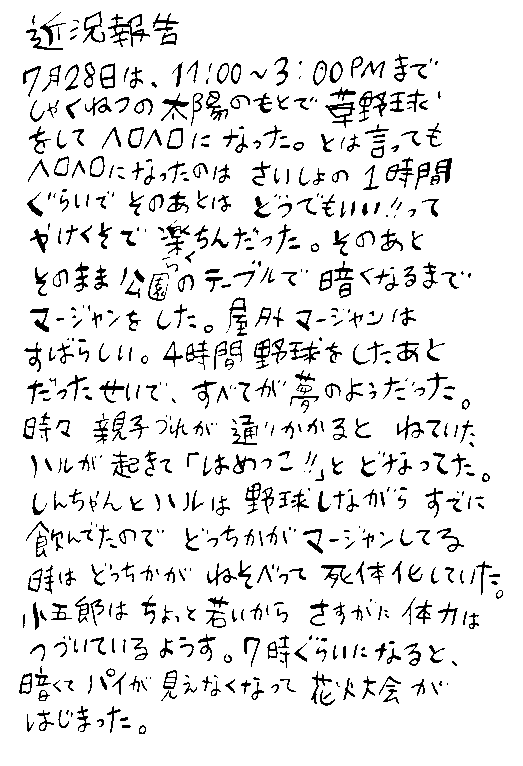 近況報告
7月28日は、11:00〜3:00PMまで
しゃくねつの太陽のもとで草野球
をしてヘロヘロになった。とは言っても
ヘロヘロになったのはさいしょの1時間
ぐらいでそのあとはどうでもいい!!って
やけくそで楽ちんだった。そのあと
らく
そのまま公園のテーブルで暗くなるまで
マージャンをした。屋外マージャンは
すばらしい。4時間野球をしたあと
だったせいで、すべてが夢のようだった。
時々親子づれが通りかかるとねていた
ハルが起きて「はめっこ!!」とどなってた。
しんちゃんとハルは野球しながらすでに
飲んでたのでどっちかがマージャンしてる
時はどっちかがねそべって死体化していた。
小五郎はちょっと若いからさすがに体力は
つづいているようす。7時ぐらいになると、
暗くてパイが見えなくなって花火大会が
はじまった。